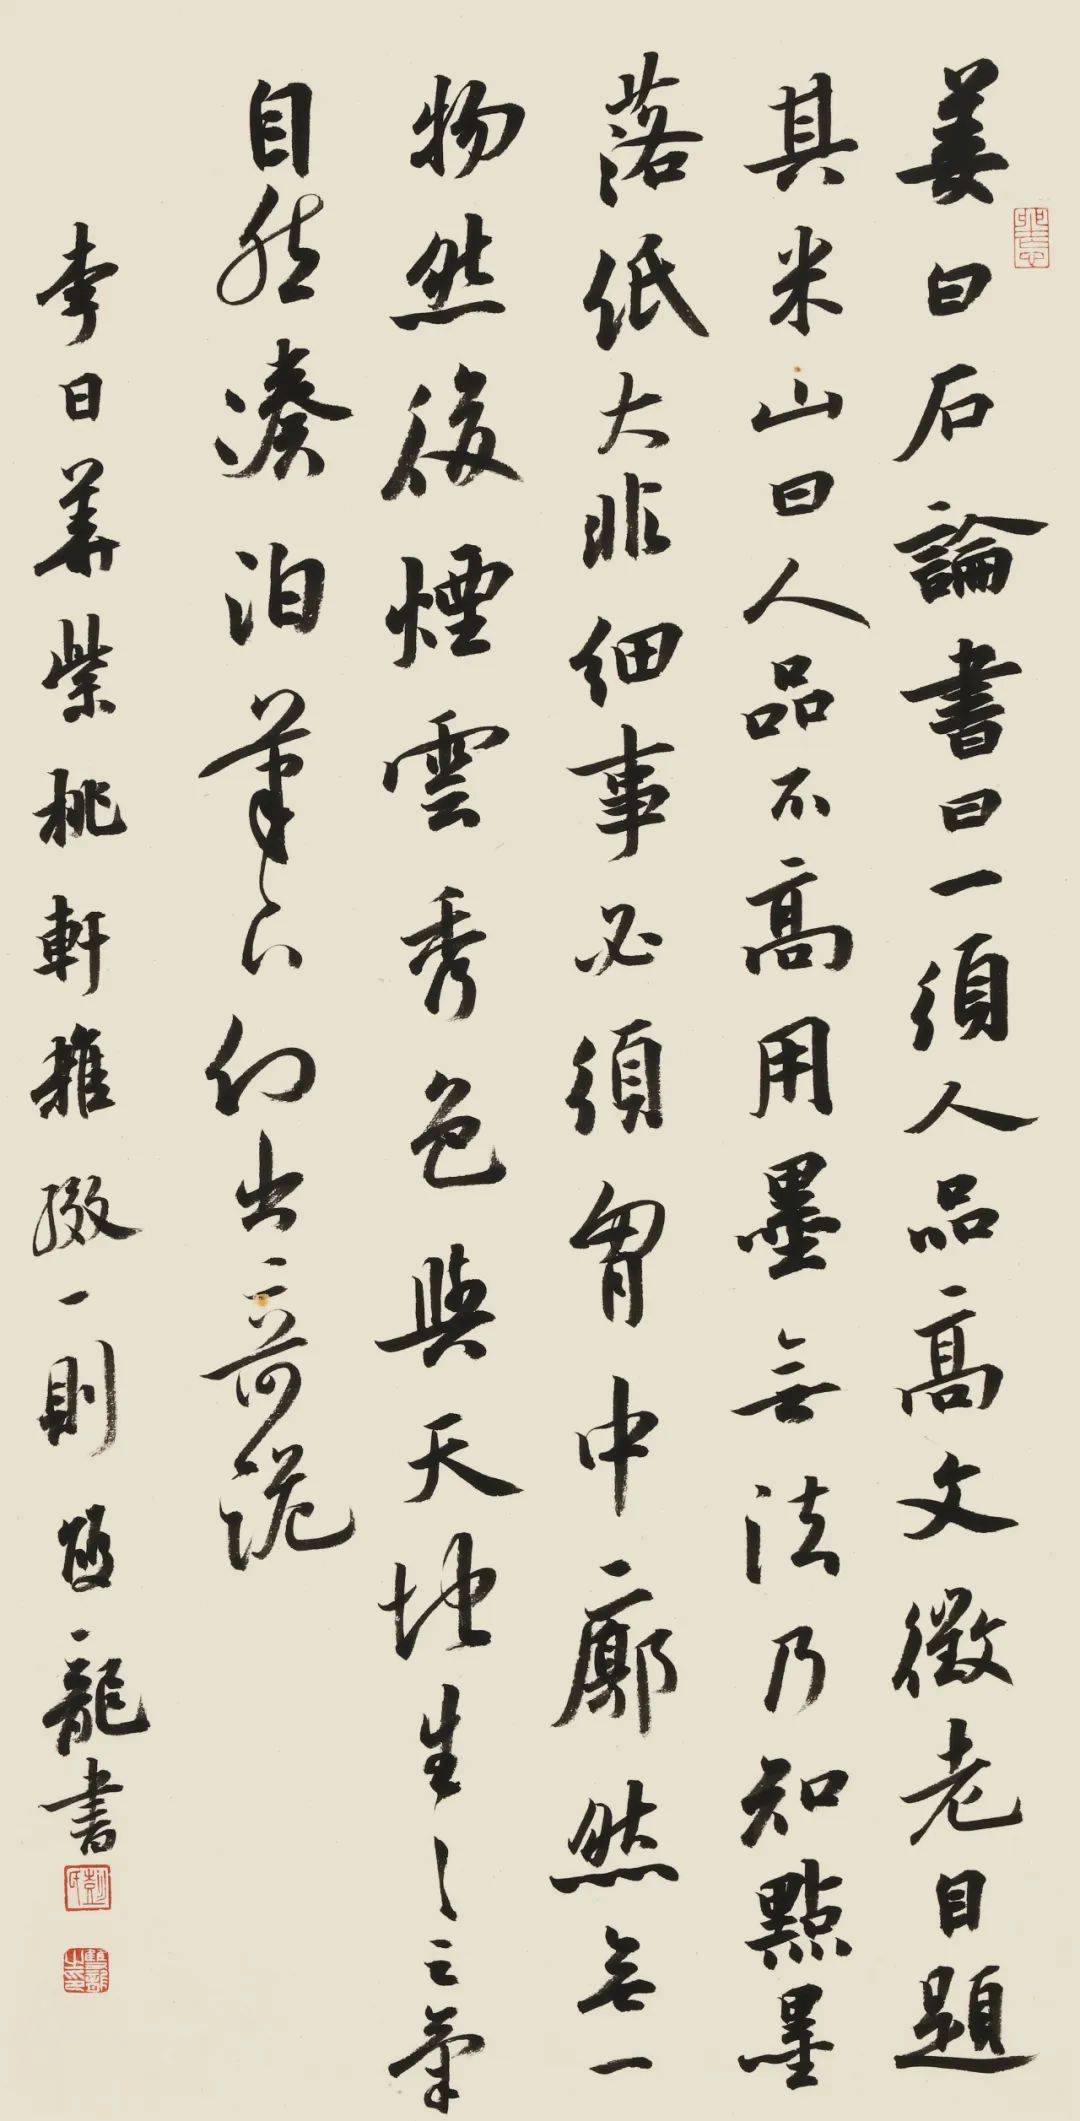 姜白石論書曰一須人品高文徵老自題
其米山曰人品不高用墨無法乃知點墨
落紙大非細事必須胷中廓然無一
物然後煙雲秀色與天地生々之氣
自然湊泊筆下幻出奇詭
李日華紫桃軒雜綴一則雙龍書
彭氏